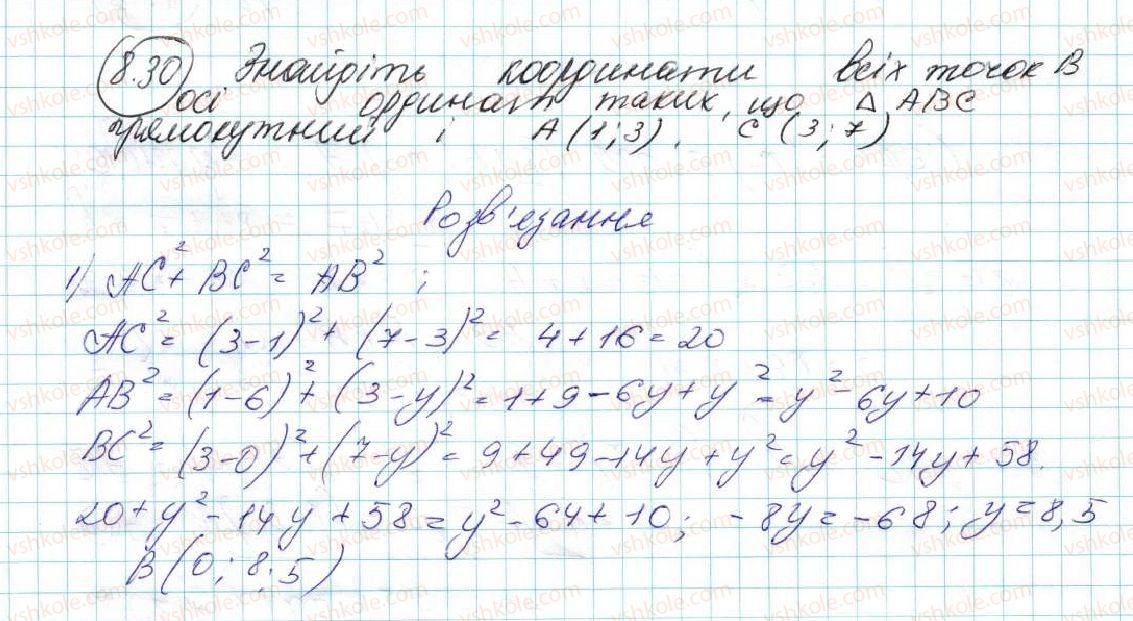 8.30 Знайдіть координати всіх точок В
осі ординат таких, що △ АВС
прямокутний і А(1;3), С(3;7)
Розв'язання
1) AC²+ BC²= AB² ;
AC²= (3-1)²+ (7-3)²= 4+16=20
AB²=(1-6)²+(3-y)²=1+9-6y+y²=y²-6y+10
BC²=(3-0)²+(7-y)²=9+49-14y+y²=y²-14y+58.
20+y²-14y+58=y²-64+10; -8y=-68; y=8,5
B(0; 8,5)
vshkole.com